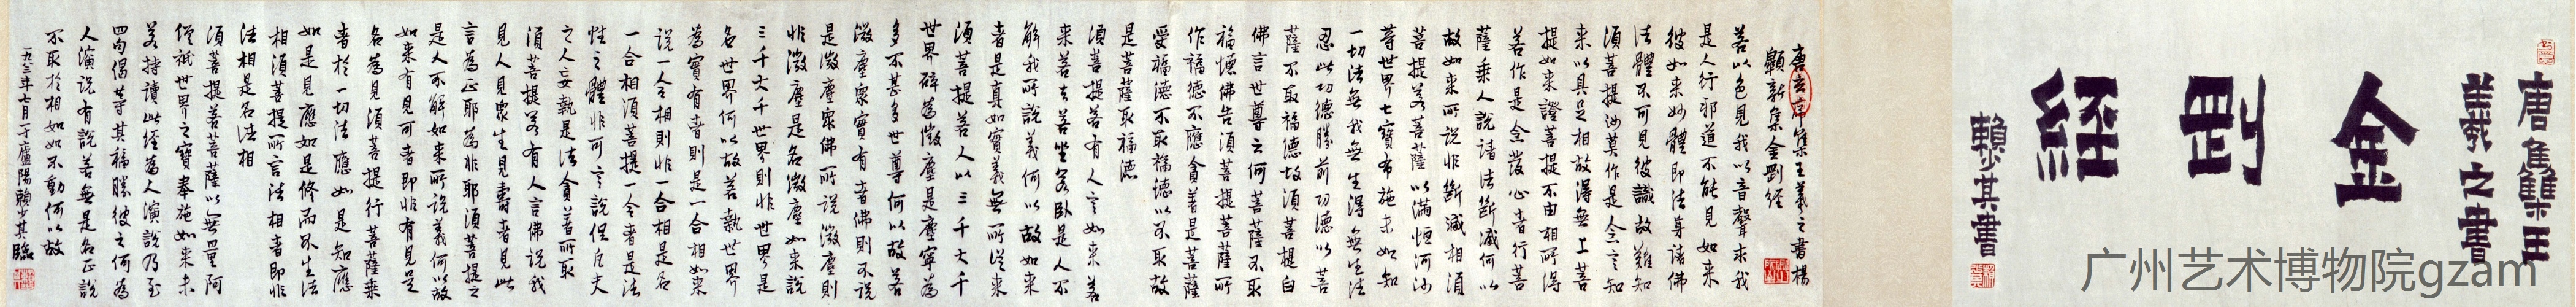 唐集王
羲之書
金剛經
賴少其書
唐玄序集王羲之書楊
䫖新集金剛經
若以色見我以音聲求我
是人行邪道不能見如來
彼如來妙體即法身諸佛
法體不可見彼識故難知
須菩提汝莫作是念言如
來以具足相故得無上菩
提如來證菩提不由相所得
若作是念發心者行菩
薩乘人說諸法斷滅何以
故如來所說非斷滅相須
菩提若菩薩以滿恒河沙
等世界七寶布施未如知
一切法無我無生得無生法
忍此功德勝前功德以菩
薩不取福德故須菩提白
佛言世尊云何菩薩不取
福德佛告須菩提菩薩所
作福德不應貪著是菩薩
受福德不取福德以不取故
是菩薩取福德
須菩提若有人言如來若
來若去若坐若臥是人不
解我所說義何以故如來
者是真如實義無所從來
須菩提若人以三千大千
世界碎為微塵是塵寧為
多不甚多世尊何以故若
微塵眾實有者佛則不說
是微塵眾佛所說微塵則
非微塵是名微塵如來說
三千大千世界則非世界是
名世界何以故若執世界
為實有者則是一合相如來
說一合相則非一合相是名
一合相須菩提一合者是法
性之體非可言說但凡夫
之人妄執是法貪著所取
須菩提若有人言佛說我
見人見眾生見壽者見此
言為正耶為非耶須菩提之
是人不解如來所說義何以故
如來有見可者即非有見是
名為見須菩提行菩薩乘
者於一切法應如是知應
如是見應如是修而不生法
相須菩提所言法相者即非
法相是名法相
須菩提若菩薩以無量阿
僧祇世界之寶奉施如來未
若持讀此經為人演說乃至
四句偈等其福勝彼云何為
人演說有說若無是名正說
不取於相如如不動何以故
一九八三年七月一于廬陽賴少其臨
广州艺术博物院gzam